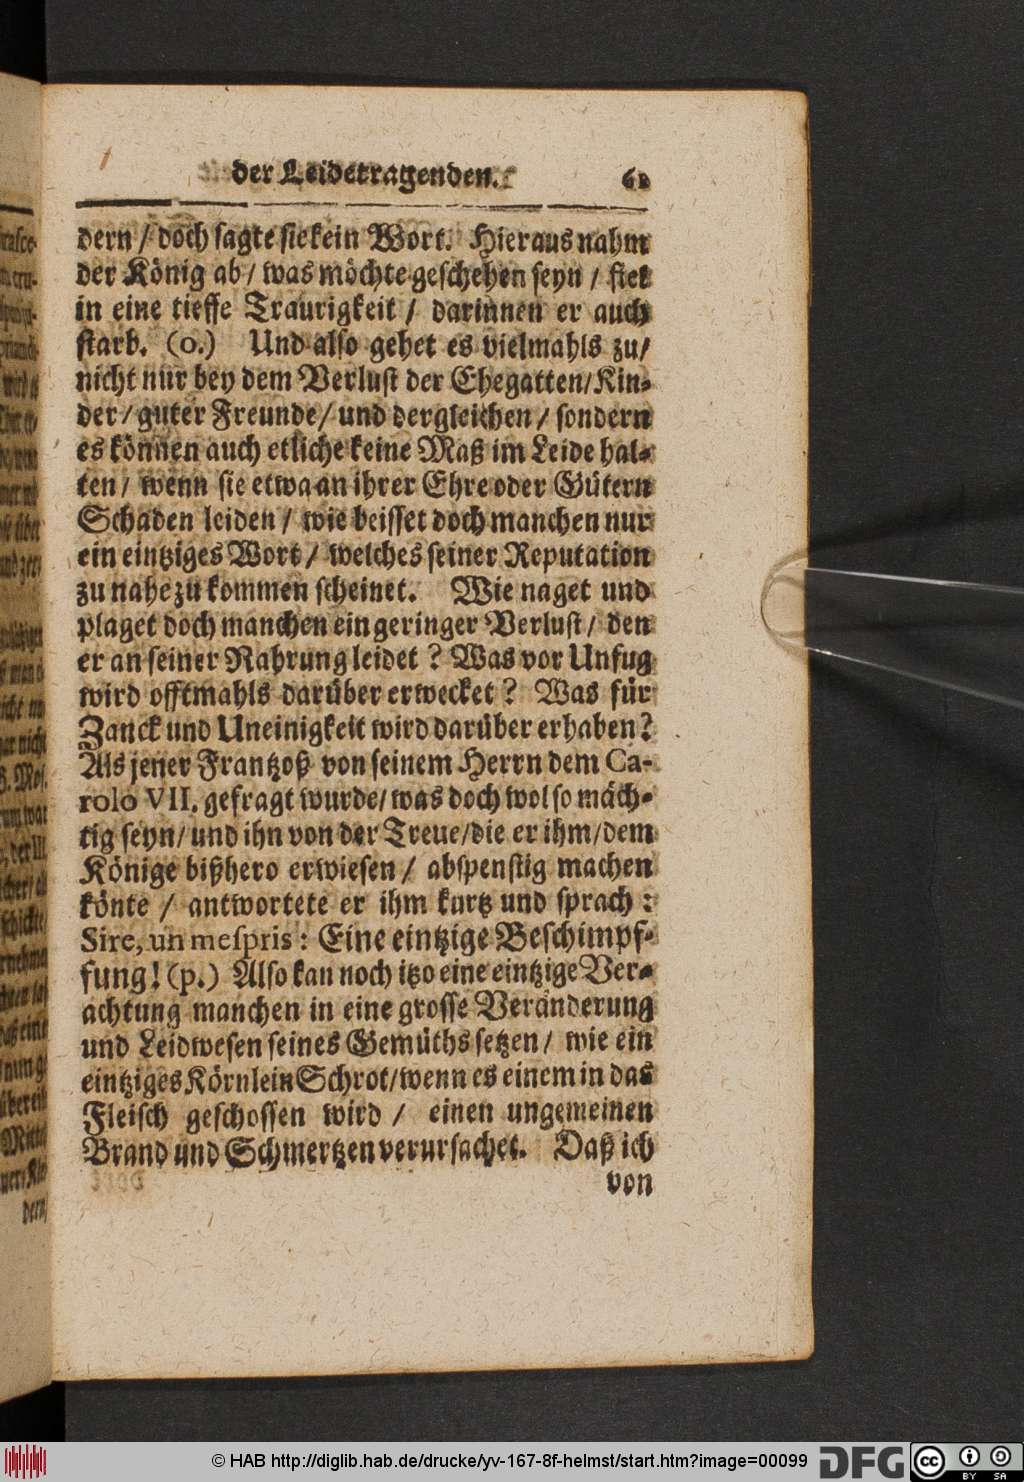 der Leidetragenden. 61
dern / doch sagte sie kein Wort. Hieraus nahm
der König ab / was möchte geschehen seyn / fiel
in eine tieffe Traurigkeit / darinnen er auch
starb. (o.) Und also gehet es vielmahls zu /
nicht nur bey dem Verlust der Ehegatten / Kin-
der / guter Freunde / und dergleichen / sondern
es können auch etliche keine Maß im Leide hal-
ten / wenn sie etwa an ihrer Ehre oder Gütern
Schaden leiden / wie beisset doch manchen nur
ein eintziges Wort / welches seiner Reputation
zu nahe zu kommen scheinet. Wie naget und
plaget doch manchen ein geringer Verlust / den
er an seiner Nahrung leidet ? Was vor Unfug
wird offtmahls darüber erwecket ? Was für
Zanck und Uneinigkeit wird darüber erhaben ?
Als jener Frantzoß von seinem Herrn dem Ca-
rolo VII. gefragt wurde / was doch wol so mäch-
tig seyn / und ihn von der Treue / die er ihm / dem
Könige bißhero erwiesen / abspenstig machen
könte / antwortete er ihm kurtz und sprach :
Sire, un mespris : Eine eintzige Beschimpf-
fung ! (p.) Also kan noch itzo eine eintzige Ver-
achtung manchen in eine grosse Veränderung
und Leidwesen seines Gemüths setzen / wie ein
eintziges Körnlein Schrot / wenn es einem in das
Fleisch geschossen wird / einen ungemeinen
Brand und Schmertzen verursachet. Daß ich
von
© HAB http://diglib.hab.de/drucke/yv-167-8f-helmst/start.htm?image=00099
DFG
cc BY SA